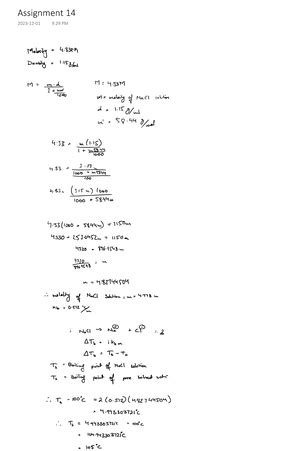 Assignment 14
2023-12-01 9:29 PM
Molarity = 4.33M
Density = 1.15 g/ml
M = m·d
M = 4.33M
m = molality of NaCl solution
d = 1.15 g/ml
= 58.44 g/mol
4.33 = m(1.15)
4.33 =
4.33 = (1.15 m) 1000
1000 + 58.44m
4.33(1000 + 58.44m) = 1150m
4330 + 253.0452m = 1150m
4330 =
= m
m = 4.82744504
∴ molality of NaCl solution, m =
Kb = 0.512 °C/m
NaCl → Na⊕ + Cl⊖
ΔTb = i Kb m
ΔTb = Tb - To
Tb = Boiling point of NaCl solution
To = Boiling point of pure solvent water
∴ Tb - 100°C = 2 (0.512) (4.82744504)
= 4.943303721°C
∴ Tb = 4.943303721°C + 100°C
= 104.943303721°C
= 105°C